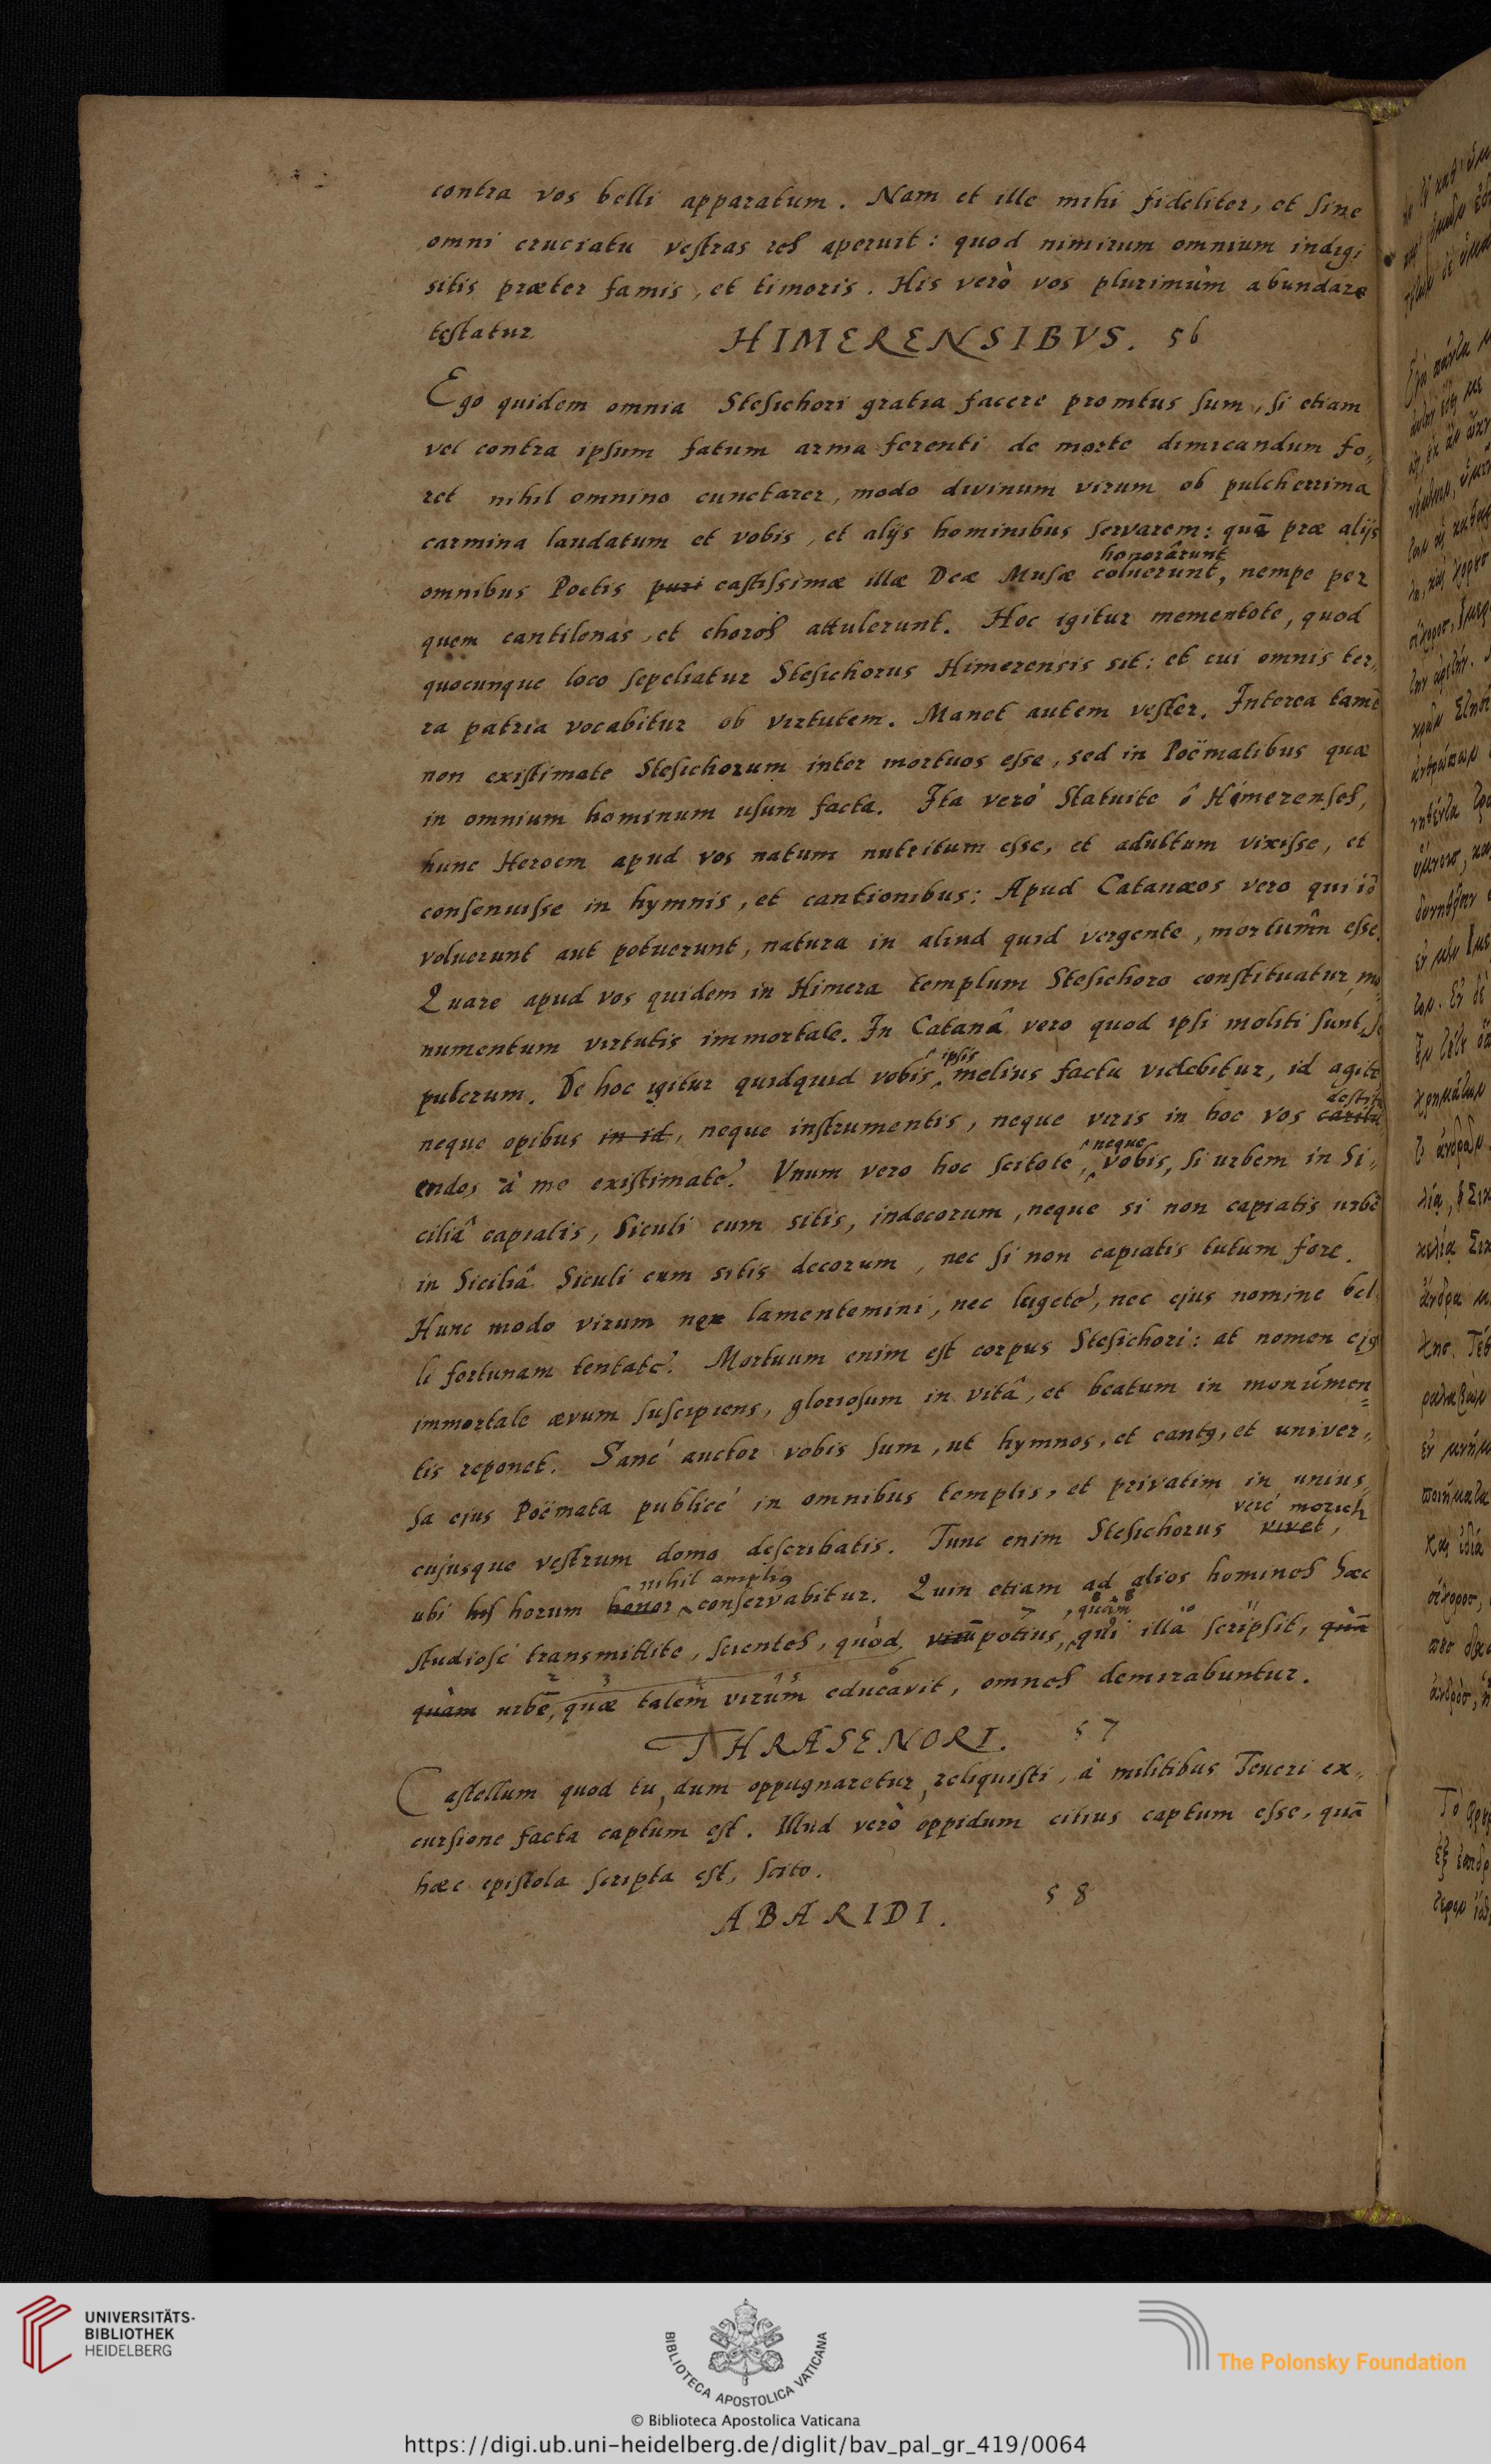 contra vos belli apparatum. Nam et ille mihi fideliter, et sine
omni cruciatu vestras res aperuit: quod nimirum omnium indigi
sitis præter famis, et timoris. His verò vos plurimùm abundare
testatur.
HIMERENSIBVS. 56
Ego quidem omnia Stesichori gratia facere promtus sum, si etiam
vel contra ipsum fatum arma ferenti de morte dimicandum fo„
ret nihil omnino cunctarer, modo divinum virum ob pulcherrima
carmina laudatum et vobis, et alijs hominibus servarem: quē præ alijs
honorârunt
omnibus Poetis puri castissimæ illæ Deæ Musæ coluerunt, nempe per
quem cantilenas, et choros attulerunt. Hoc igitur mementote, quod
quocunque loco sepeliatur Stesichorus Himerensis sit: et cui omnis ter„
ra patria vocabitur ob virtutem. Manet autem vester. Interea tamē
non existimate Stesichorum inter mortuos esse, sed in Poëmatibus quæ
in omnium hominum usum facta. Ita verò statuite ô Himerenses,
hunc Heroem apud vos natum nutritum esse, et adultum vixisse, et
consenuisse in hymnis, et cantionibus: Apud Catanæos vero qui id
voluerunt aut potuerunt, natura in aliud quid vergente, mortuum esse.
Quare apud vos quidem in Himera templum Stesichoro constituatur, mo„
numentum virtutis immortale. In Catanâ vero quod ipsi moliti sunt, se
ipsis
pulcrum. De hoc igitur quidquid vobis melius factu videbitur, id agite
desti„
neque opibus in id, neque instrumentis, neque viris in hoc vos caritu„
neque
endos à me existimate. Vnum vero hoc scitote, vobis, si urbem in Si„
ciliâ capiatis, Siculi cum sitis, indecorum, neque si non capiatis urbē
in Siciliâ Siculi cum sitis decorum, nec si non capiatis tutum fore.
Hunc modo virum nex lamentemini, nec lugete, nec ejus nomine bel„
li fortunam tentate. Mortuum enim est corpus Stesichori: at nomen ejꝰ
immortale ævum suscipiens, gloriosum in vitâ, et beatum in monúmen=
tis reponet. Sanè auctor vobis sum, ut hymnos, et cantꝰ, et univer„
sa ejus Poëmata publicè in omnibus templis, et privatim in unius„
verè
cujusque vestrum domo describatis. Tunc enim Stesichorus vivet,
nihil ampliꝰ
ubi his horum honor conservabitur. Quin etiam ad alios homines hæc
quàm
studiosè transmittite, scientes, quòd, virū potius, qui illa scripsit, quā
quàm urbē, quæ talem virum educavit, omnes demirabuntur.
THRASENORI. 57
Castellum quod tu, dum oppugnaretur, reliquisti, à militibus Teucri ex„
cursione facta captum est. Illud verò oppidum citius captum esse, quā
hæc epistola scripta est, scito.
ABARIDI. 58
UNIVERSITÄTS-
BIBLIOTHEK
HEIDELBERG
BIBLIOTECA APOSTOLICA VATICANA
The Polonsky Foundation
© Biblioteca Apostolica Vaticana
https://digi.ub.uni-heidelberg.de/diglit/bav_pal_gr_419/0064